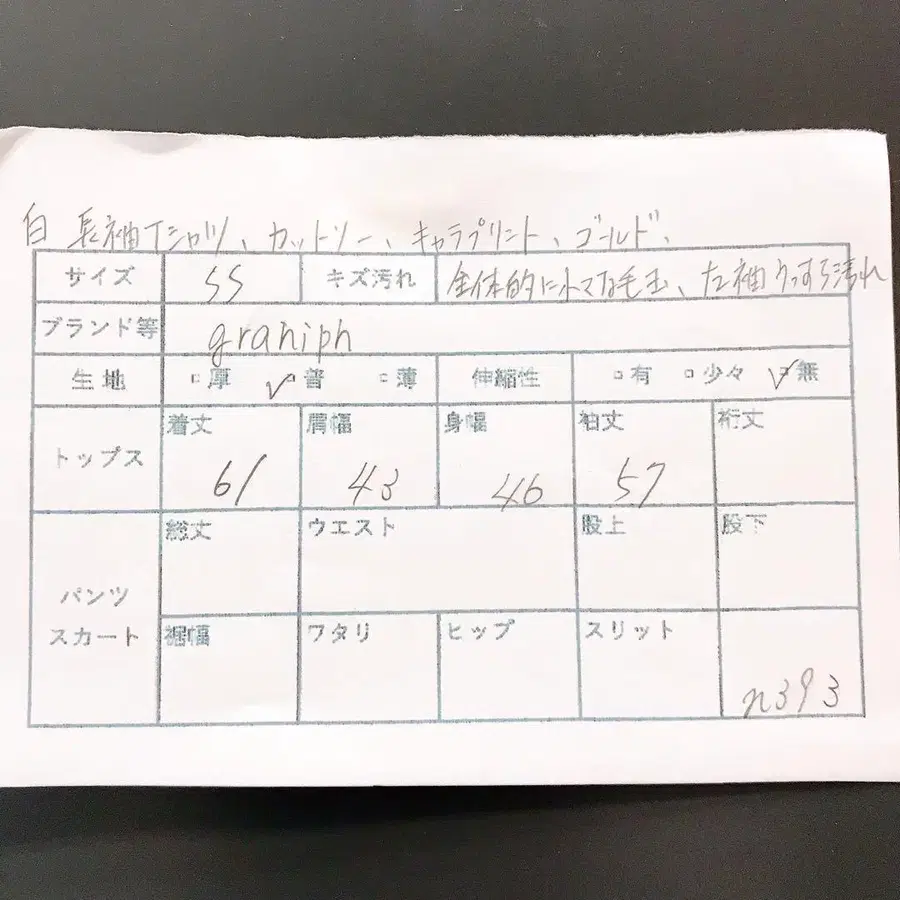 白 長袖Tシャツ、カットソー、キャラプリント、ゴールド、
サイズ SS キズ汚れ 全体的に小さな毛玉、左袖うっすら汚れ
ブランド等 graniph
生地 □厚 ✓□普 □薄 伸縮性 □有 □少々 ✓□無
トップス 着丈 61 肩幅 43 身幅 46 袖丈 57 裄丈
パンツ スカート
総丈 ウエスト 股上 股下
裾幅 ワタリ ヒップ スリット n393